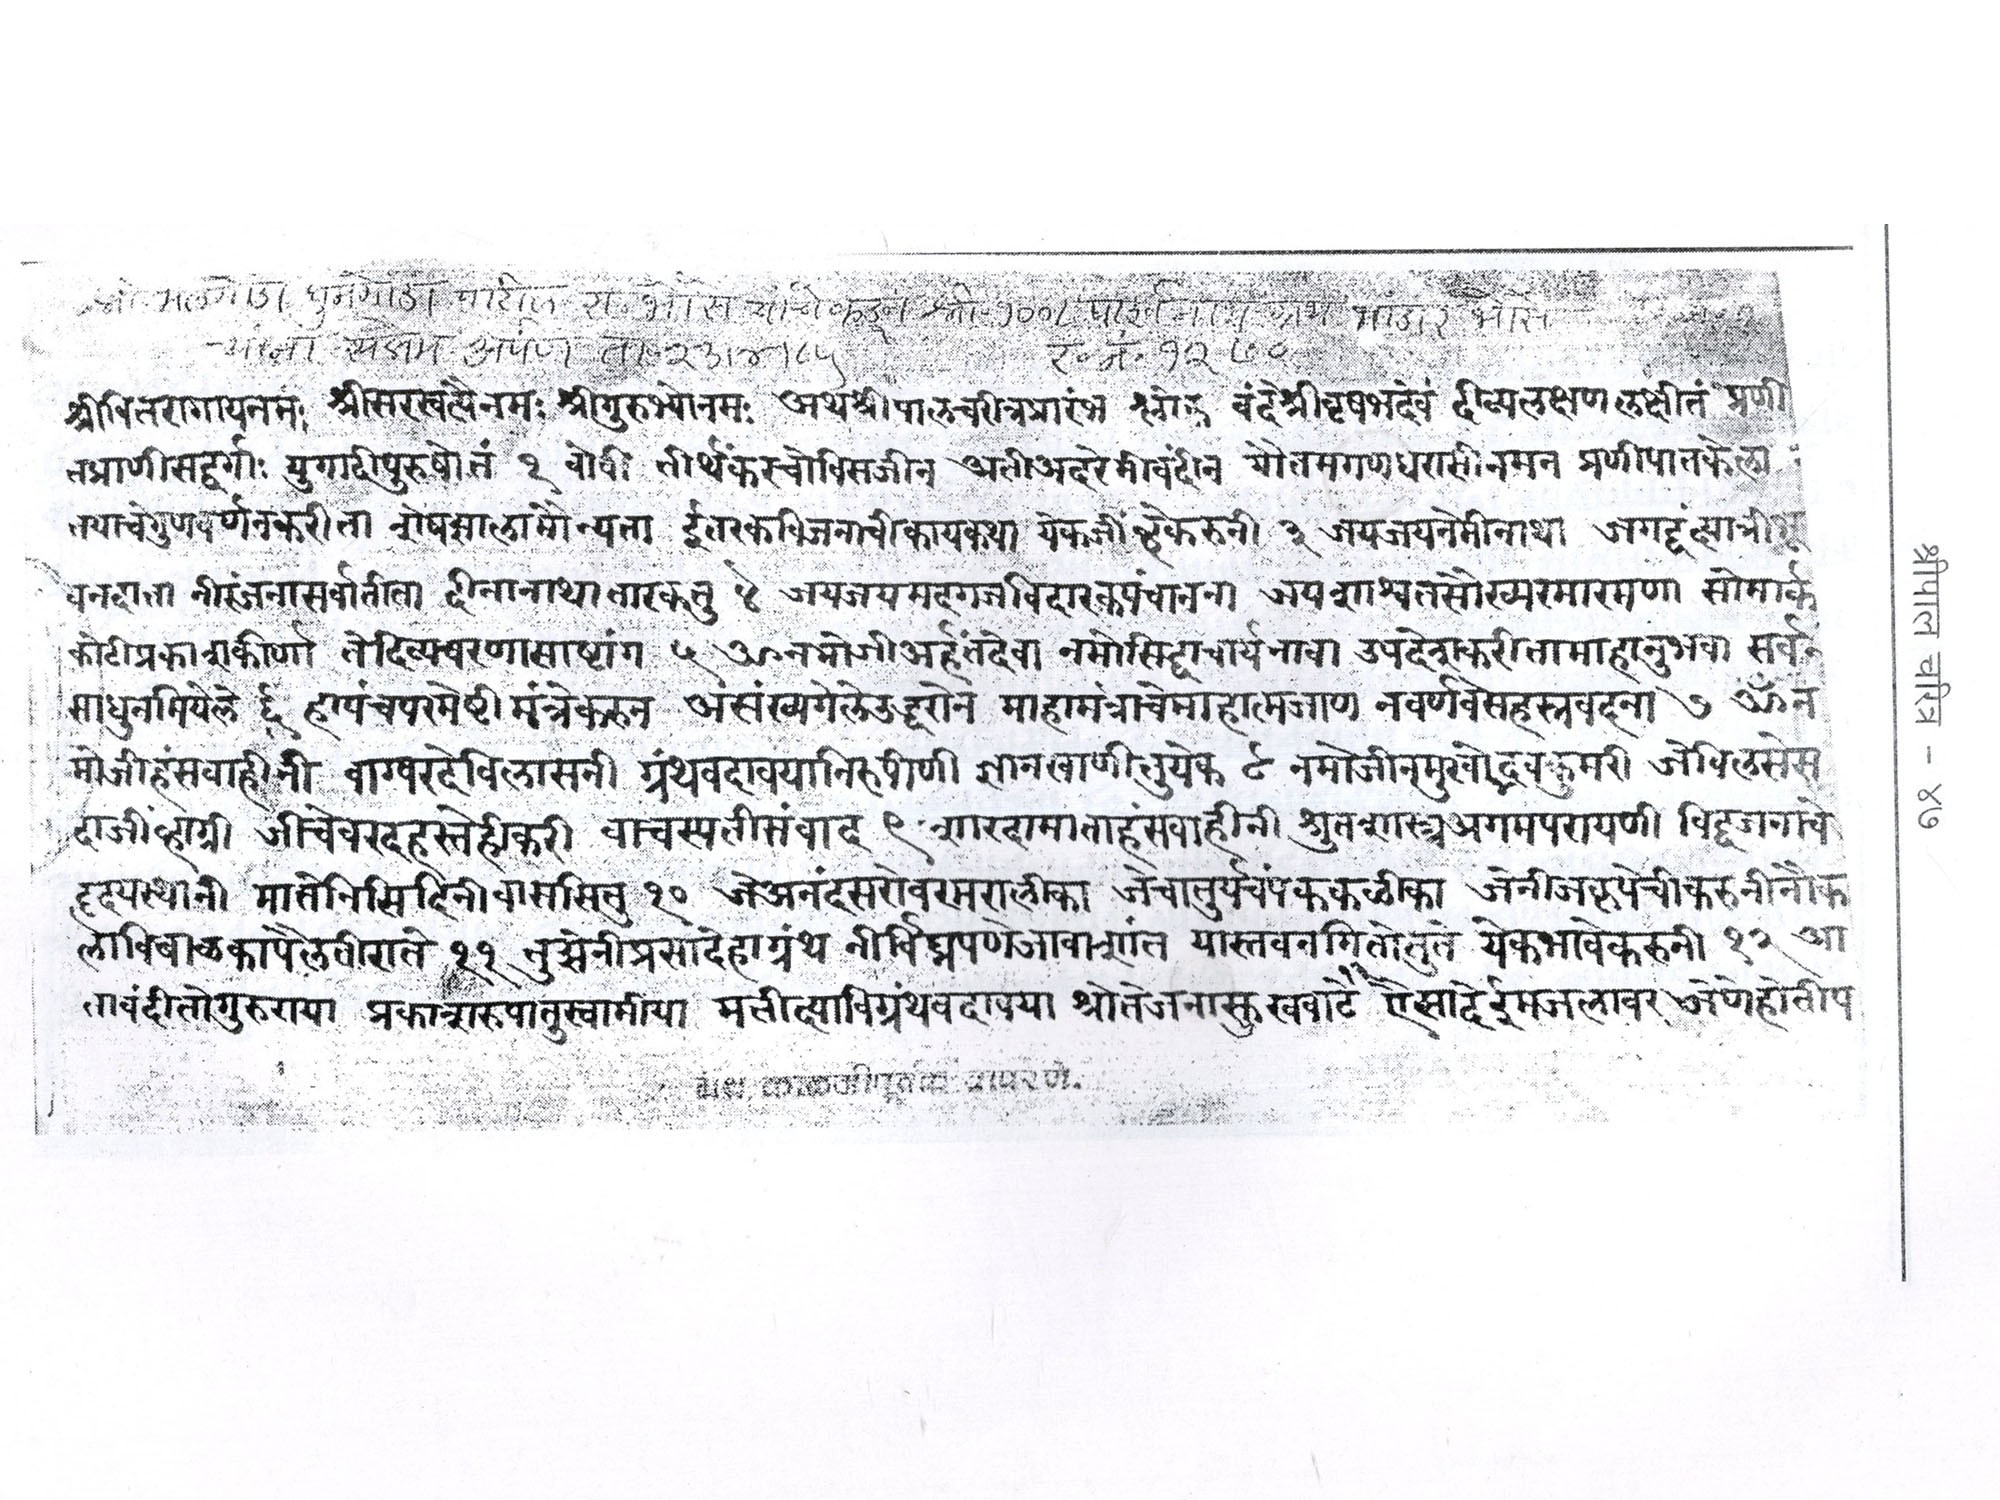 श्री १००८ पार्श्वनाथ ग्रंथ भांडार भोसे
यांना सप्रेम अर्पण ता. र. नं. १२७०
श्रीवितरागायनमः श्रीसरस्वत्यैनमः श्रीगुरुभ्योनमः अथश्रीपालचरीत्रप्रारंभ श्लोक वंदेश्रीवृषभदेवं दीव्यलक्षणलक्षीतं प्रणी
तप्राणीसद्वर्गाः युगादीपुरुषोतं १ वोवी तीर्थंकरचोविसजीन अतीअदरेमीवंदीन गौतमगणधरासीनमन प्रणीपातकेला
तयाचेगुणवर्णनकरीता शेषझालामौन्यता ईतरकविजनाचीकायकथा येकजींव्हेकरुनी ३ जयजयनेमीनाथा जगद्वंत्द्यात्री
वनदाता नीरंजनासर्वातीता दीनानाथातारकतु ४ जयजयमदगजविदारकपंचानना जयशाश्वतसौख्यरमारमणा सोमार्क
कोटीप्रकाशकीर्णा तेदिव्यचरणासाष्टांग ५ ॐनमोजीअर्हंतदेवा नमोसिद्धाचार्यनावा उपदेशकरीतामाहानुभवा सर्व
साधुनमियेले ६ हापंचपरमेष्टीमंत्रेकरुन असंख्यगेलेउद्धरोन माहामंत्राचेमाहात्मजाण नवर्णवेसहस्त्रवदना ७ ॐन
मोजीहंसवाहीनी वाग्वरदेविलासनी ग्रंथवदावयानिरुपीणी ज्ञानखाणीतुयेक ८ नमोजीनमुखोद्भवकुमरी जेविलसेस
दाजींव्हाग्री जीचेवरदहस्तेहीकरी वाचस्पतीसंवाद ९ शारदामाताहंसवाहीनी श्रुतशास्त्रअगमपरायणी विद्वजनाचे
हृदयस्थानी मातेनिसिदिनीवाससितु १० जेअनंदसरोवरमरालीका जेचातुर्यचंपककळीका जेनीजकृपेचीकरुनीनौक
लाविबाळकापैलतीराते ११ तुझेनीप्रसादेहाग्रंथ नीर्विघ्नपणेजावाशांत यास्तवनगितोतुते येकभावेकरुनी १२ आ
तावंदीतोगुरुराया प्रकाशरुपातुस्वामीया मतीद्याविग्रंथवदावया श्रोतेजनासुखवाटे १३ ऐसाटेईमजलावर जेणेहोतीप
ग्रंथ काळजीपूर्वक वापरणे.
श्रीपाल चरित्र - ४७